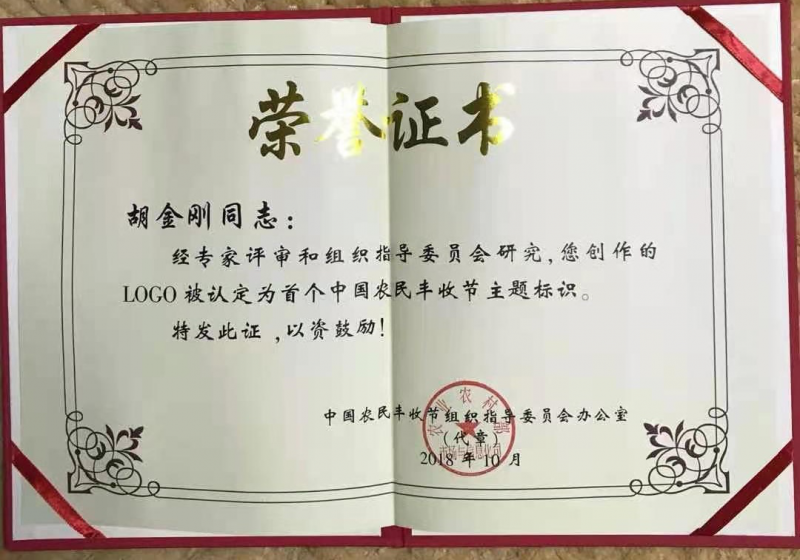 荣誉证书
胡金刚同志：
经专家评审和组织指导委员会研究,您创作的
LOGO被认定为首个中国农民丰收节主题标识。
特发此证,以资鼓励!
中国农民丰收节组织指导委员会办公室
(代章)
2018年10月
农业农村部